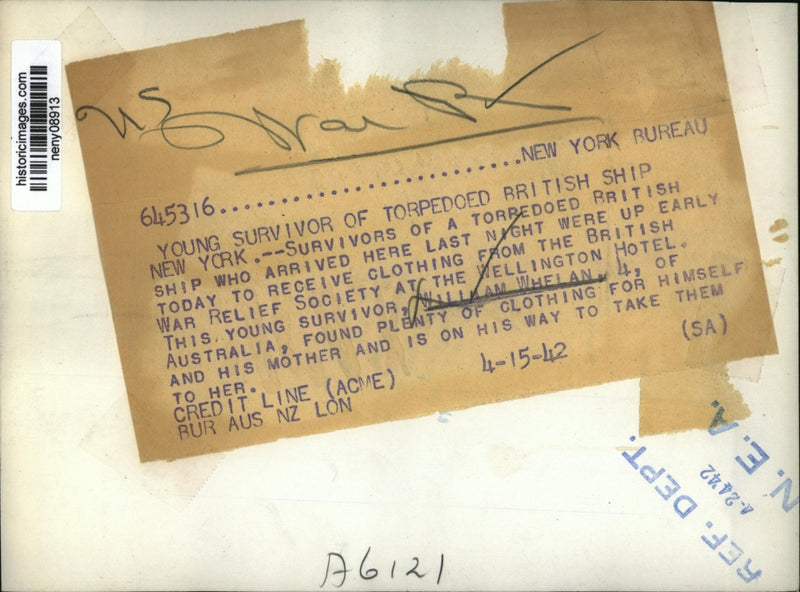 historicimages.com
neny08913
War
645316..........................NEW YORK BUREAU
YOUNG SURVIVOR OF TORPEDOED BRITISH SHIP
NEW YORK.--SURVIVORS OF A TORPEDOED BRITISH
SHIP WHO ARRIVED HERE LAST NIGHT WERE UP EARLY
TODAY TO RECEIVE CLOTHING FROM THE BRITISH
WAR RELIEF SOCIETY AT THE WELLINGTON HOTEL.
THIS YOUNG SURVIVOR, WILLIAM WHELAN, 4, OF
AUSTRALIA, FOUND PLENTY OF CLOTHING FOR HIMSELF
AND HIS MOTHER AND IS ON HIS WAY TO TAKE THEM
TO HER. (SA)
CREDIT LINE (ACME) 4-15-42
BUR AUS NZ LON
REF. DEPT.
N. E. A.
A6121